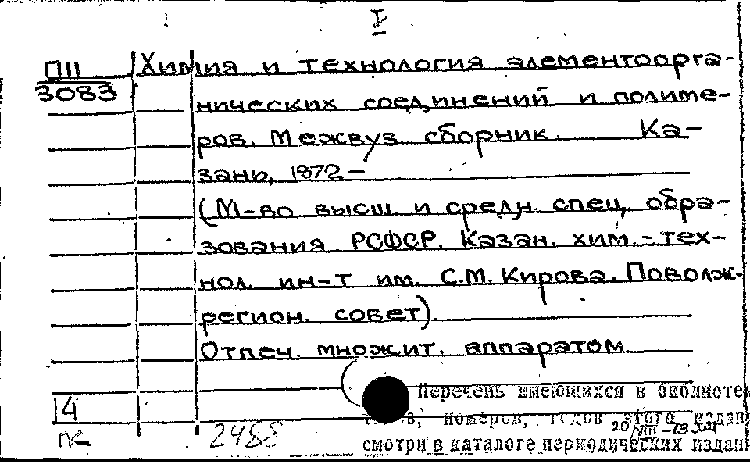 I
П11 Химия и технология элементоорга-
3083 нических соединений и полиме-
ров. Межвуз сборник. Ка-
зань, 1972 –
(М-во высш. и средн. спец. обра-
зования РСФСР. Казан. хим.-тех-
нол. ин-т им. С.М. Кирова. Поволж.
регион. совет).
Отпеч. множит. аппаратом.
Перечень имеющихся в библиоте
14 номеров, годов этого издан
2488 смотри в каталоге периодических издани